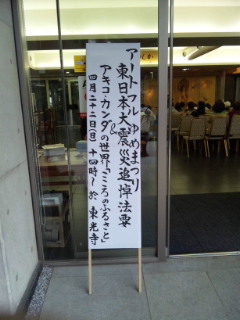 アートフルゆめまつり
東日本大震災追悼法要
&
アキコ・カンダの世界「こころのふるさと」
四月二十二日(日) 十四時〜 於 東光寺